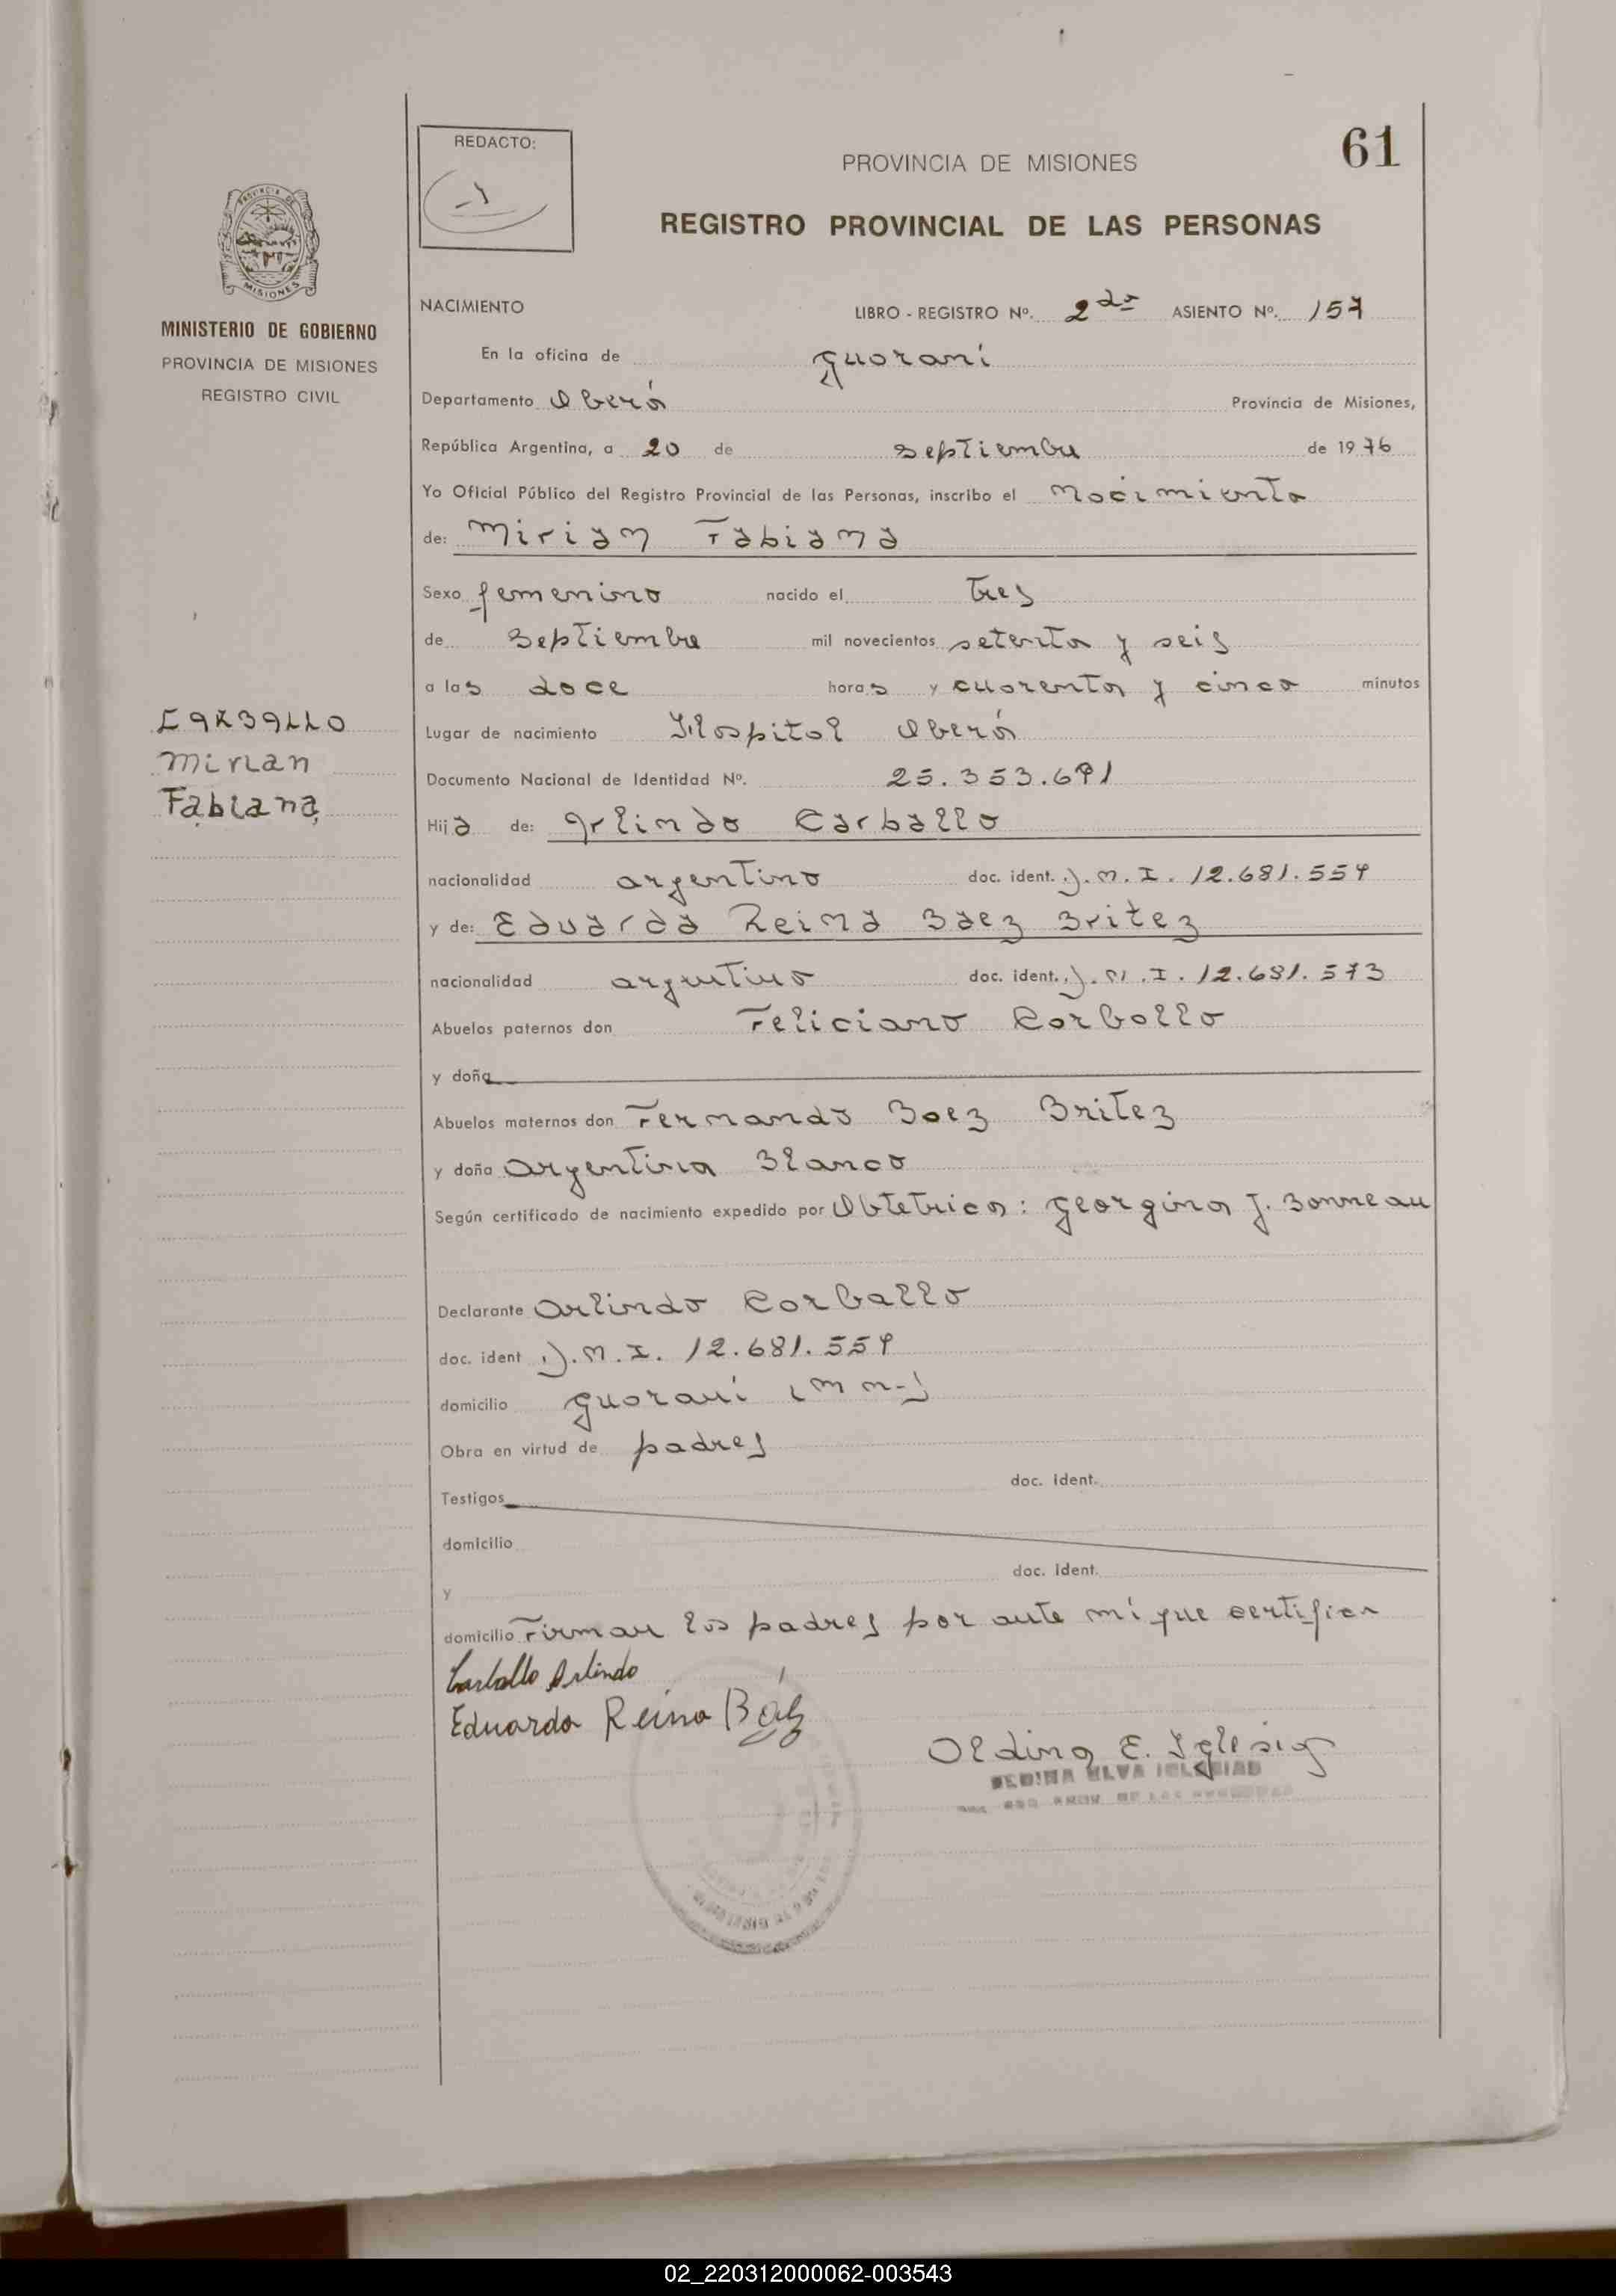 61
REDACTO:
PROVINCIA DE MISIONES
REGISTRO PROVINCIAL DE LAS PERSONAS
PROVINCIA DE
MISIONES
MINISTERIO DE GOBIERNO
PROVINCIA DE MISIONES
REGISTRO CIVIL
NACIMIENTO LIBRO - REGISTRO Nº. 2do ASIENTO Nº. 157
En la oficina de Guarani
Departamento Oberá Provincia de Misiones,
República Argentina, a 20 de septiembre de 1976
Yo Oficial Público del Registro Provincial de las Personas, inscribo el nacimiento
de: Miriam Fabiana
Sexo femenino nacido el tres
de septiembre mil novecientos setenta y seis
a las doce horas y cuarenta y cinco minutos
Lugar de nacimiento Hospital Oberá
CARBALLO
Mirian
Fabiana
Documento Nacional de Identidad Nº. 25.353.691
Hija de: Arlindo Carballo
nacionalidad argentino doc. ident. D.N.I. 12.681.559
y de: Eduarda Reina Baez Britez
nacionalidad argentino doc. ident. D.N.I. 12.681.573
Abuelos paternos don Feliciano Carballo
y doña
Abuelos maternos don Fernando Baez Britez
y doña Argentina Blanco
Según certificado de nacimiento expedido por Obtetrica: Georgina J. Bonneau
Declarante Arlindo Carballo
doc. ident D.N.I. 12.681.559
domicilio Guaraní (Mnes)
Obra en virtud de padres
doc. ident.
Testigos
domicilio
doc. ident.
y
domicilio Firman los padres por ante mí que certifico
Carballo Arlindo
Eduarda Reina Báez
Oldina E. Iglesias
ELVA IGLESIAS
02_220312000062-003543